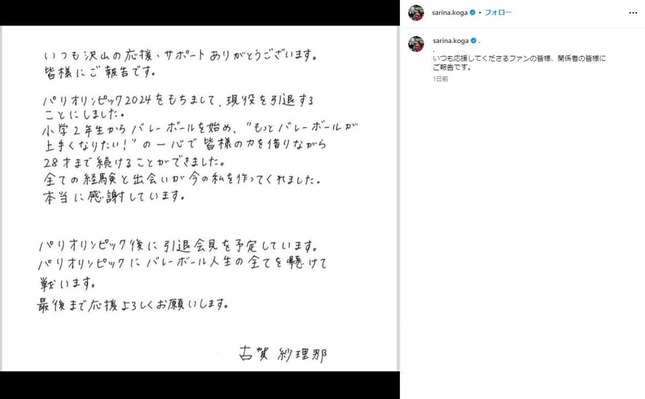 いつも沢山の応援・サポートありがとうございます。
皆様にご報告です。
パリオリンピック2024をもちまして、現役を引退する
ことにしました。
小学2年生からバレーボールを始め、"もっとバレーボールが
上手くなりたい!"の一心で皆様の力を借りながら
28才まで続けることができました。
全ての経験と出会いが今の私を作ってくれました。
本当に感謝しています。
パリオリンピック後に引退会見を予定しています。
パリオリンピックにバレーボール人生の全てを懸けて
戦います。
最後まで応援よろしくお願いします。
古賀 紗理那
sarina.koga • フォロー
sarina.koga .
.
いつも応援してくださるファンの皆様、関係者の皆様に
ご報告です。
1日前